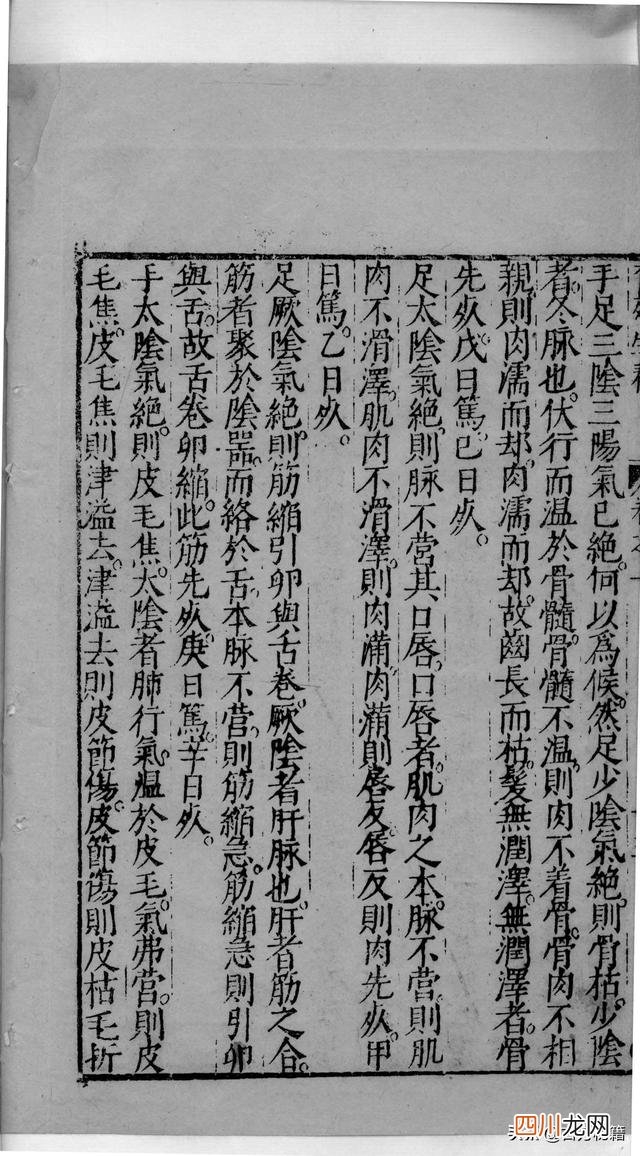 手足三陰三陽氣已絶何以爲候然足少陰氣絶則骨枯少陰
者冬脉也伏行而温於骨髓骨髓不温則肉不着骨骨肉不相
親則肉濡而却肉濡而却故齒長而枯髮無潤澤無潤澤者骨
先死戊日篤己日死
足太陰氣絶則脉不營其口唇口唇者肌肉之本脉不營則肌
肉不滑澤肌肉不滑澤則肉滿肉滿則唇反唇反則肉先死甲
日篤乙日死
足厥陰氣絶則筋縮引卵與舌卷厥陰者肝脉也肝者筋之合
筋者聚於陰噐而絡於舌本脉不營則筋縮急筋縮急則引卵
與舌故舌卷卵縮此筋先死庚日篤辛日死
手太陰氣絶則皮毛焦太陰者肺行氣温於皮毛氣弗營則皮
毛焦皮毛焦則津溢去津溢去則皮節傷皮節傷則皮枯毛折
四川龙网